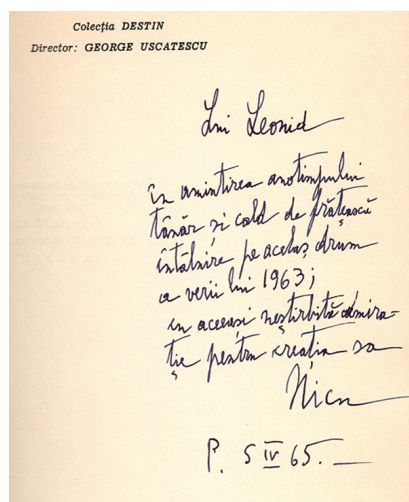 Colecția DESTIN
Director: GEORGE USCATESCU
Lui Leonid
în amintirea anotimpului
tânăr și cald de frățească
întâlnire pe acelaș drum
a verii lui 1963;
cu aceeași neștirbită admira-
ție pentru creația sa
Nicu
P. 5 IV 65.